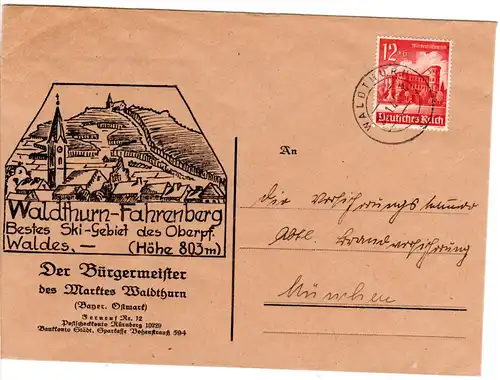 12+6
Deutsches Reich
WALDTHURN
An
Waldthurn-Fahrenberg
Bestes Ski-Gebiet des Oberpf.
Waldes, — (Höhe 803m)
Der Bürgermeister
des Marktes Waldthurn
(Bayer. Ostmark)
Fernruf Nr. 12
Postscheckkonto Nürnberg 10229
Bankkonto Städt. Sparkasse Vohenstrauß 504
die Versicherungskammer
Abtl. Brandversicherung
München